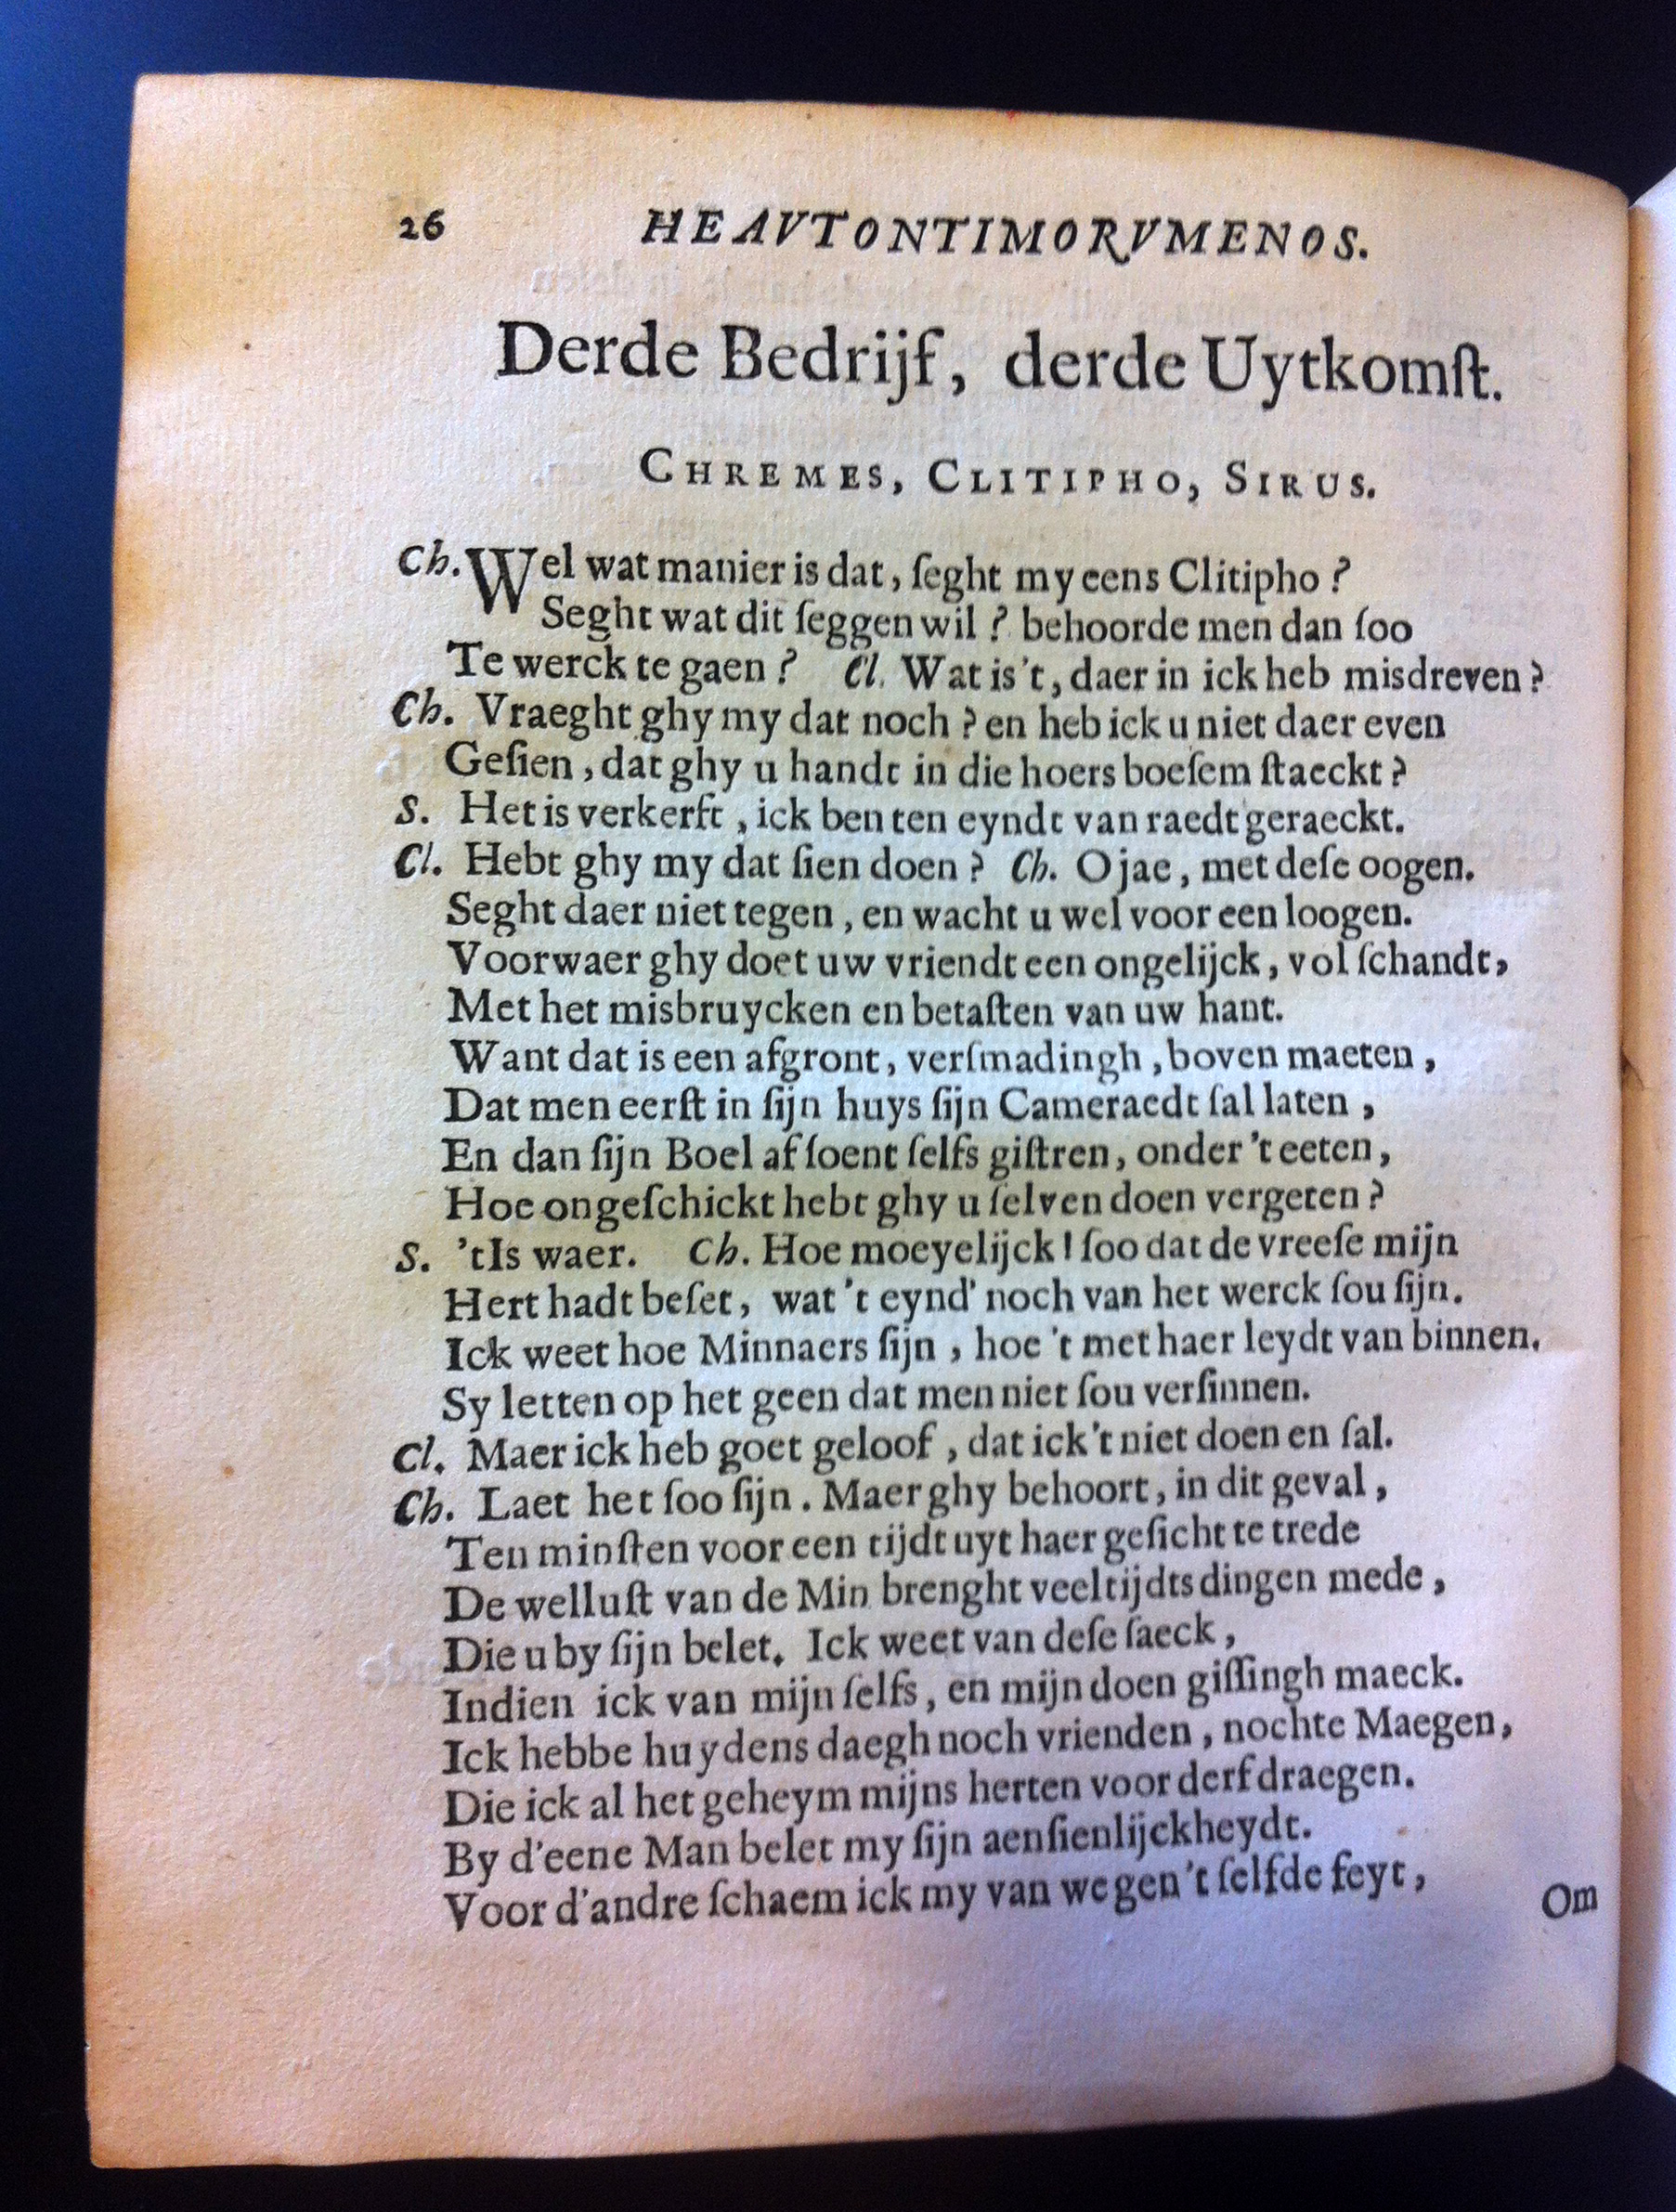 26 HEAVTONTIMORVMENOS.
Derde Bedrijf, derde Uytkomſt.
CHREMES, CLITIPHO, SIRUS.
Ch. Wel wat manier is dat, ſeght my eens Clitipho?
Seght wat dit ſeggen wil? behoorde men dan ſoo
Te werck te gaen? Cl. Wat is't, daer in ick heb misdreven?
Ch. Vraeght ghy my dat noch? en heb ick u niet daer even
Geſien, dat ghy u handt in die hoers boeſem ſtaeckt?
S. Het is verkerft, ick ben ten eyndt van raedt geraeckt.
Cl. Hebt ghy my dat ſien doen? Ch. O jae, met deſe oogen.
Seght daer niet tegen, en wacht u wel voor een loogen.
Voorwaer ghy doet uw vriendt een ongelijck, vol ſchandt,
Met het misbruycken en betaſten van uw hant.
Want dat is een afgront, verſmadingh, boven maeten,
Dat men eerſt in ſijn huys ſijn Cameraedt ſal laten,
En dan ſijn Boel af ſoent ſelfs giſtren, onder 't eeten,
Hoe ongeſchickt hebt ghy u ſelven doen vergeten?
S. 'tIs waer. Ch. Hoe moeyelijck! ſoo dat de vreeſe mijn
Hert hadt beſet, wat 't eynd' noch van het werck ſou ſijn.
Ick weet hoe Minnaers ſijn, hoe 't met haer leydt van binnen.
Sy letten op het geen dat men niet ſou verſinnen.
Cl. Maer ick heb goet geloof, dat ick 't niet doen en ſal.
Ch. Laet het ſoo ſijn. Maer ghy behoort, in dit geval,
Ten minſten voor een tijdt uyt haer geſicht te trede
De welluſt van de Min brenght veeltijdts dingen mede,
Die u by ſijn belet. Ick weet van deſe ſaeck,
Indien ick van mijn ſelfs, en mijn doen giſſingh maeck.
Ick hebbe huydens daegh noch vrienden, nochte Maegen,
Die ick al het geheym mijns herten voor derf draegen.
By d'eene Man belet my ſijn aenſienlijckheydt.
Voor d'andre ſchaem ick my van wegen 't ſelfde feyt,
Om